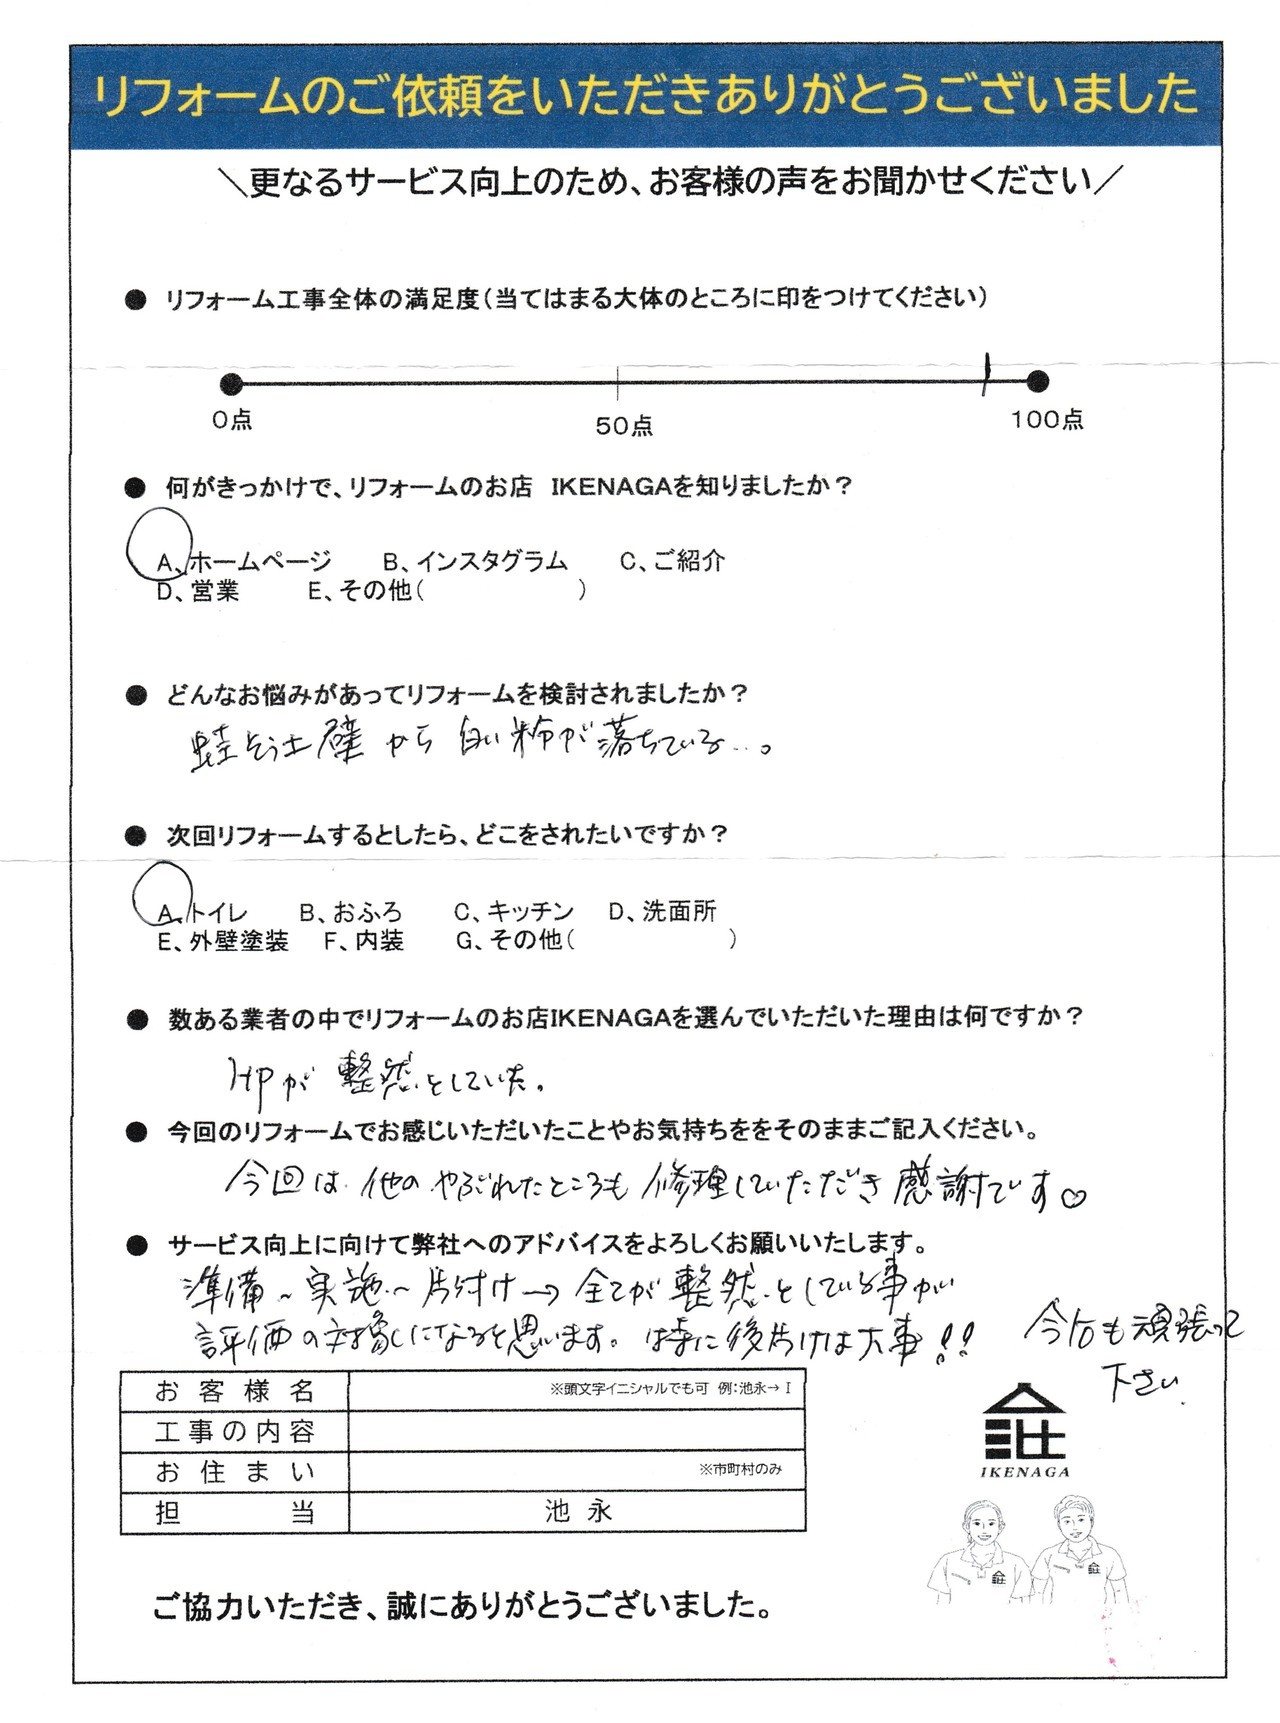 リフォームのご依頼をいただきありがとうございました
＼更なるサービス向上のため、お客様の声をお聞かせください／
● リフォーム工事全体の満足度(当てはまる大体のところに印をつけてください)
0点 50点 100点
● 何がきっかけで、リフォームのお店 IKENAGAを知りましたか？
A、ホームページ B、インスタグラム C、ご紹介
D、営業 E、その他( )
● どんなお悩みがあってリフォームを検討されましたか？
珪そう土壁から白い粉が落ちている…。
● 次回リフォームするとしたら、どこをされたいですか？
A、トイレ B、おふろ C、キッチン D、洗面所
E、外壁塗装 F、内装 G、その他( )
● 数ある業者の中でリフォームのお店IKENAGAを選んでいただいた理由は何ですか？
HPが整然としていた。
● 今回のリフォームでお感じいただいたことやお気持ちををそのままご記入ください。
今回は他のやぶれたところも修理していただき感謝です♡
● サービス向上に向けて弊社へのアドバイスをよろしくお願いいたします。
準備～実施～片付け→全てが整然としている事が
評価の対象になると思います。特に後片付けは大事!!
今后も頑張って
下さい.
お客様名 ※頭文字イニシャルでも可 例：池永→I
工事の内容
お住まい ※市町村のみ
担当 池永
IKENAGA
ご協力いただき、誠にありがとうございました。